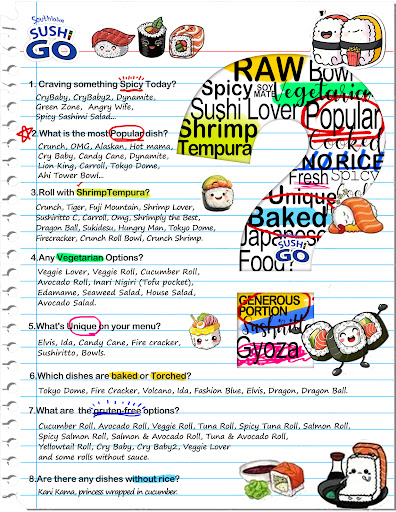 Southlake
SUSHI
GO
1. Craving something Spicy Today?
CryBaby, CryBaby2, Dynamite,
Green Zone, Angry Wife,
Spicy Sashimi Salad...
2. What is the most Popular dish?
Crunch, OMG, Alaskan, Hot mama,
Cry Baby, Candy Cane, Dynamite,
Lion King, Carroll, Tokyo Dome,
Ahi Tower Bowl...
3. Roll with ShrimpTempura?
Crunch, Tiger, Fuji Mountain, Shrimp Lover,
Sushiritto C, Carroll, Omg, Shrimply the Best,
Dragon Ball, Sukidesu, Hungry Man, Tokyo Dome,
Firecracker, Crunch Roll Bowl, Crunch Shrimp.
4. Any Vegetarian Options?
Veggie Lover, Veggie Roll, Cucumber Roll,
Avocado Roll, Inari Nigiri (Tofu pocket),
Edamame, Seaweed Salad, House Salad,
Avocado Salad.
5. What's Unique on your menu?
Elvis, Ida, Candy Cane, Fire cracker,
Sushiritto, Bowls.
6. Which dishes are baked or Torched?
Tokyo Dome, Fire Cracker, Volcano, Ida, Fashion Blue, Elvis, Dragon, Dragon Ball.
7. What are the gruten-free options?
Cucumber Roll, Avocado Roll, Veggie Roll, Tuna Roll, Spicy Tuna Roll, Salmon Roll,
Spicy Salmon Roll, Salmon & Avocado Roll, Tuna & Avocado Roll,
Yellowtail Roll, Cry Baby, Cry Baby2, Veggie Lover
and some rolls without sauce.
8. Are there any dishes without rice?
Kani Kama, princess wrapped in cucumber.
RAW Bowl
Spicy SOY MATE Vegetarian
Sushi Lover Popular
Shrimp Cooked
Tempura NO RICE
Fresh Spicy
Unique
Baked
Japanese
SUSHI
GO
Food?
GENEROUS
PORTION
Sushiritto
Gyoza